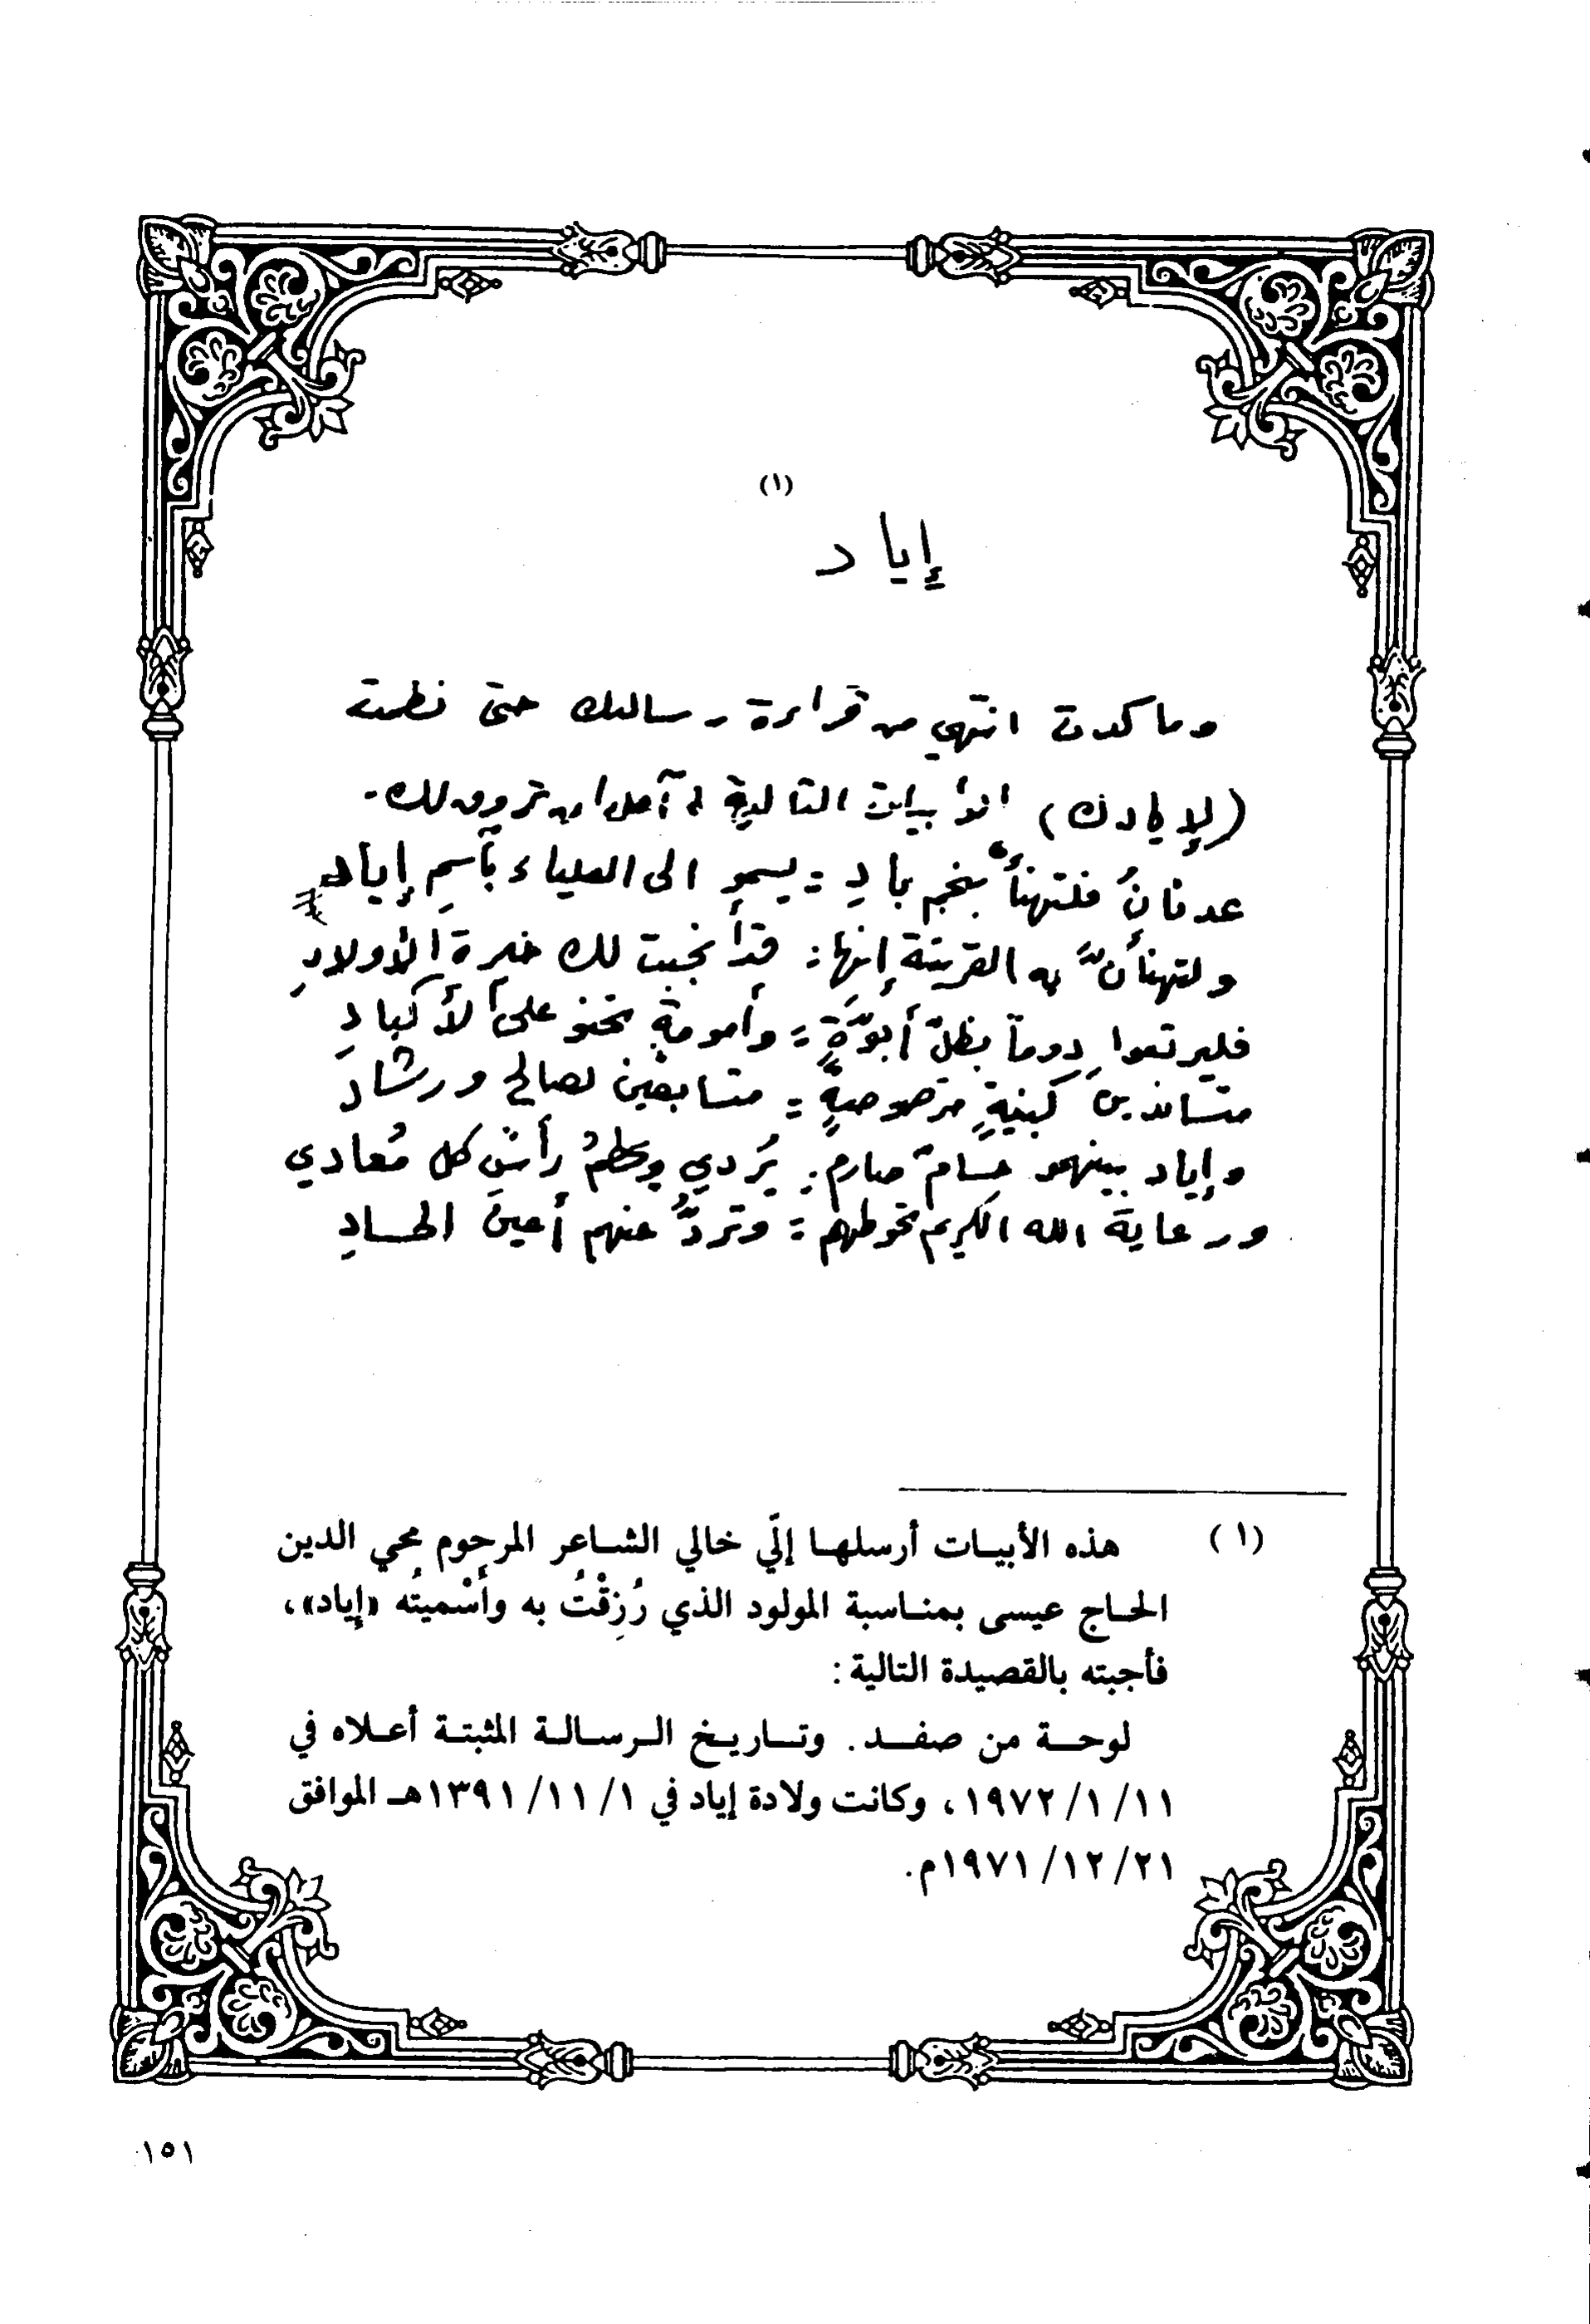 (١)
إياد
وما كدت انتهي من قراءة رسالتك حتى نظمت
(لإيادك) الأبيات التالية آمل ان تروق لك.
عدنانُ فلتهنأْ بنجم بادِ = يسمو الى العلياء بآسمِ إيادِ
ولتهنأنّ به القرينة إنها = قد أنجبت لك خيرة الأولادِ
فليرتعوا دوماً بظلّ أبوّةٍ = وأمومةٍ تحنو على الأكبادِ
متساندين كبنيةٍ مرصوصةٍ = متسابقين لصالح ورشاد
وإياد بينهمو حسامٌ صارم = يُردي ويحطمُ رأسَ كل مُعادي
ورعاية الله الكريم تحوطهم = وتردُّ عنهم أعينَ الحسادِ
(١) هذه الأبيات أرسلها إليّ خالي الشاعر المرحوم محي الدين
الحاج عيسى بمناسبة المولود الذي رُزِقْتُ به وأَسْميتُه «إياد»،
فأجبته بالقصيدة التالية:
لوحة من صفد. وتاريخ الرسالة المثبتة أعلاه في
١١/١/١٩٧٢، وكانت ولادة إياد في ١/١١/١٣٩١هـ الموافق
٢١/١٢/١٩٧١م.
١٥١